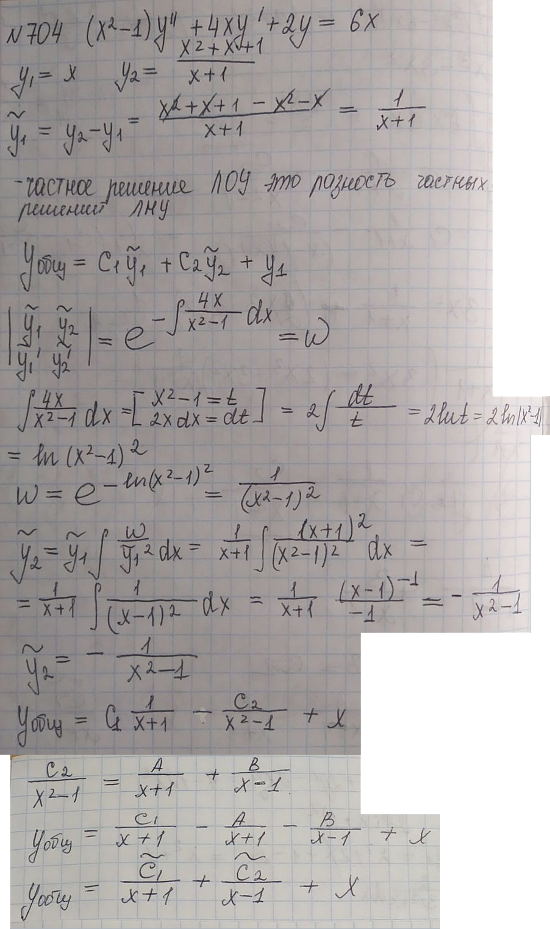 №704 (x²-1)y'' + 4xy' + 2y = 6x
y₁ = x y₂ = (x²+x+1)/(x+1)
ỹ₁ = y₂-y₁ = (x²+x+1-x²-x)/(x+1) = 1/(x+1)
-частное решение ЛОУ это разность частных
решений ЛНУ
Yобщ = C₁ỹ₁ + C₂ỹ₂ + y₁
|ỹ₁ ỹ₂; ỹ₁' ỹ₂'| = e^(-∫ 4x/(x²-1) dx) = w
∫ 4x/(x²-1) dx = [x²-1=t; 2xdx=dt] = 2∫ dt/t = 2lnt = 2ln|x²-1|
= ln(x²-1)²
w = e^(-ln(x²-1)²) = 1/(x²-1)²
ỹ₂ = ỹ₁ ∫ w/ỹ₁² dx = 1/(x+1) ∫ (x+1)²/(x²-1)² dx =
= 1/(x+1) ∫ 1/(x-1)² dx = 1/(x+1) (x-1)⁻¹/-1 = - 1/(x²-1)
ỹ₂ = - 1/(x²-1)
Yобщ = C₁ 1/(x+1) - C₂/(x²-1) + x
C₂/(x²-1) = A/(x+1) + B/(x-1)
Yобщ = C₁/(x+1) - A/(x+1) - B/(x-1) + x
Yобщ = C̃₁/(x+1) + C̃₂/(x-1) + x